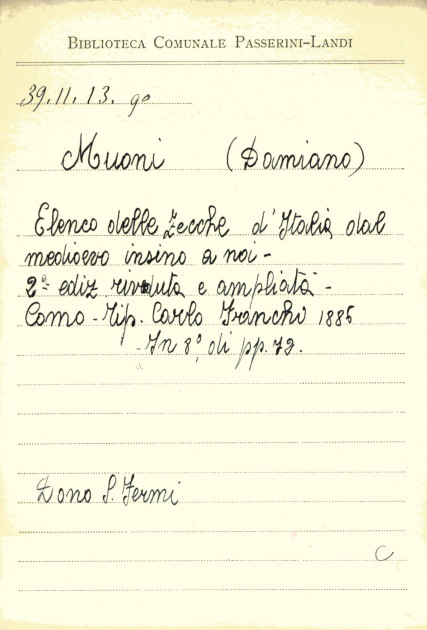 BIBLIOTECA COMUNALE PASSERINI-LANDI
39.11.13. 9°
Muoni (Damiano)
Elenco delle Zecche d'Italia dal
medioevo insino a noi -
2ª ediz riveduta e ampliata -
Como - Tip. Carlo Franchi 1886
- In 8°, di pp. 72.
Dono S. Fermi
C